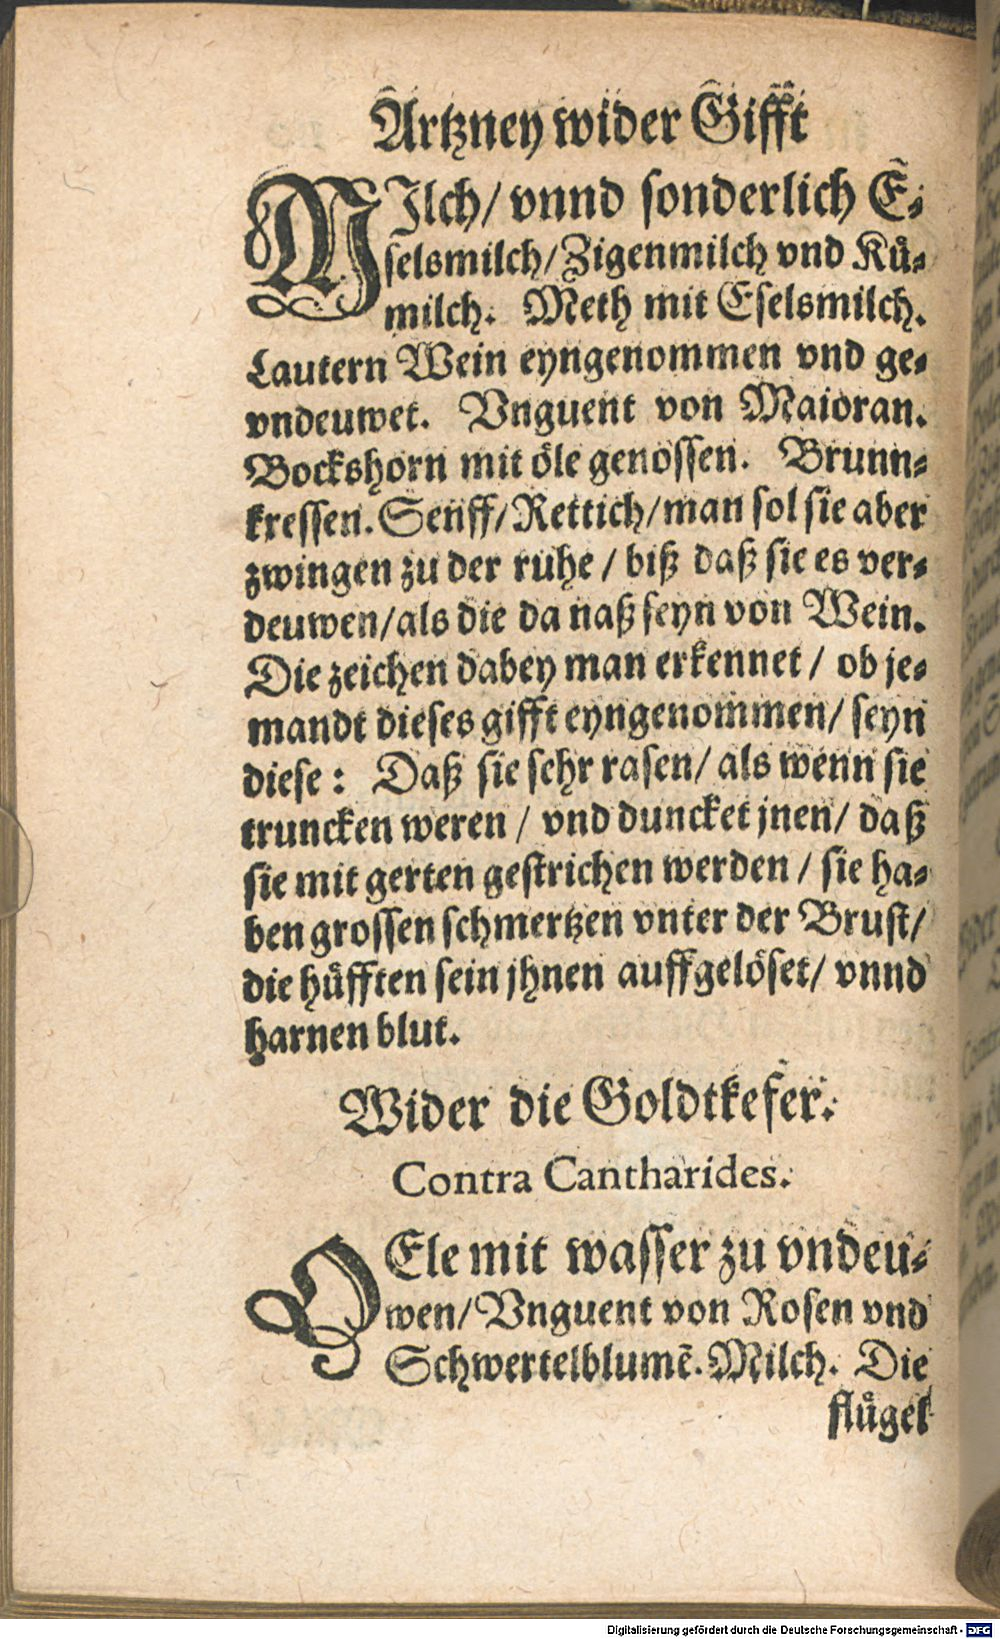 Artzney wider Gifft
MIlch/ vnnd sonderlich E-
selsmilch/Zigenmilch vnd Kuͤ-
milch. Meth mit Eselsmilch.
Lautern Wein eyngenommen vnd ge-
vndeuwet. Vnguent von Maioran.
Bockshorn mit oͤle genossen. Brunn-
kressen. Senff/Rettich/man sol sie aber
zwingen zu der ruhe / biß daß sie es ver-
deuwen/als die da naß seyn von Wein.
Die zeichen dabey man erkennet / ob je-
mandt dieses gifft eyngenommen/ seyn
diese: Daß sie sehr rasen/ als wenn sie
truncken weren / vnd duncket jnen/ daß
sie mit gerten gestrichen werden / sie ha-
ben grossen schmertzen vnter der Brust/
die huͤfften sein jhnen auffgeloͤset/ vnnd
harnen blut.
Wider die Goldtkefer.
Contra Cantharides.
OEle mit wasser zu vndeu-
wen/Vnguent von Rosen vnd
Schwertelblumē. Milch. Die
fluͤgel
Digitalisierung gefördert durch die Deutsche Forschungsgemeinschaft - DFG